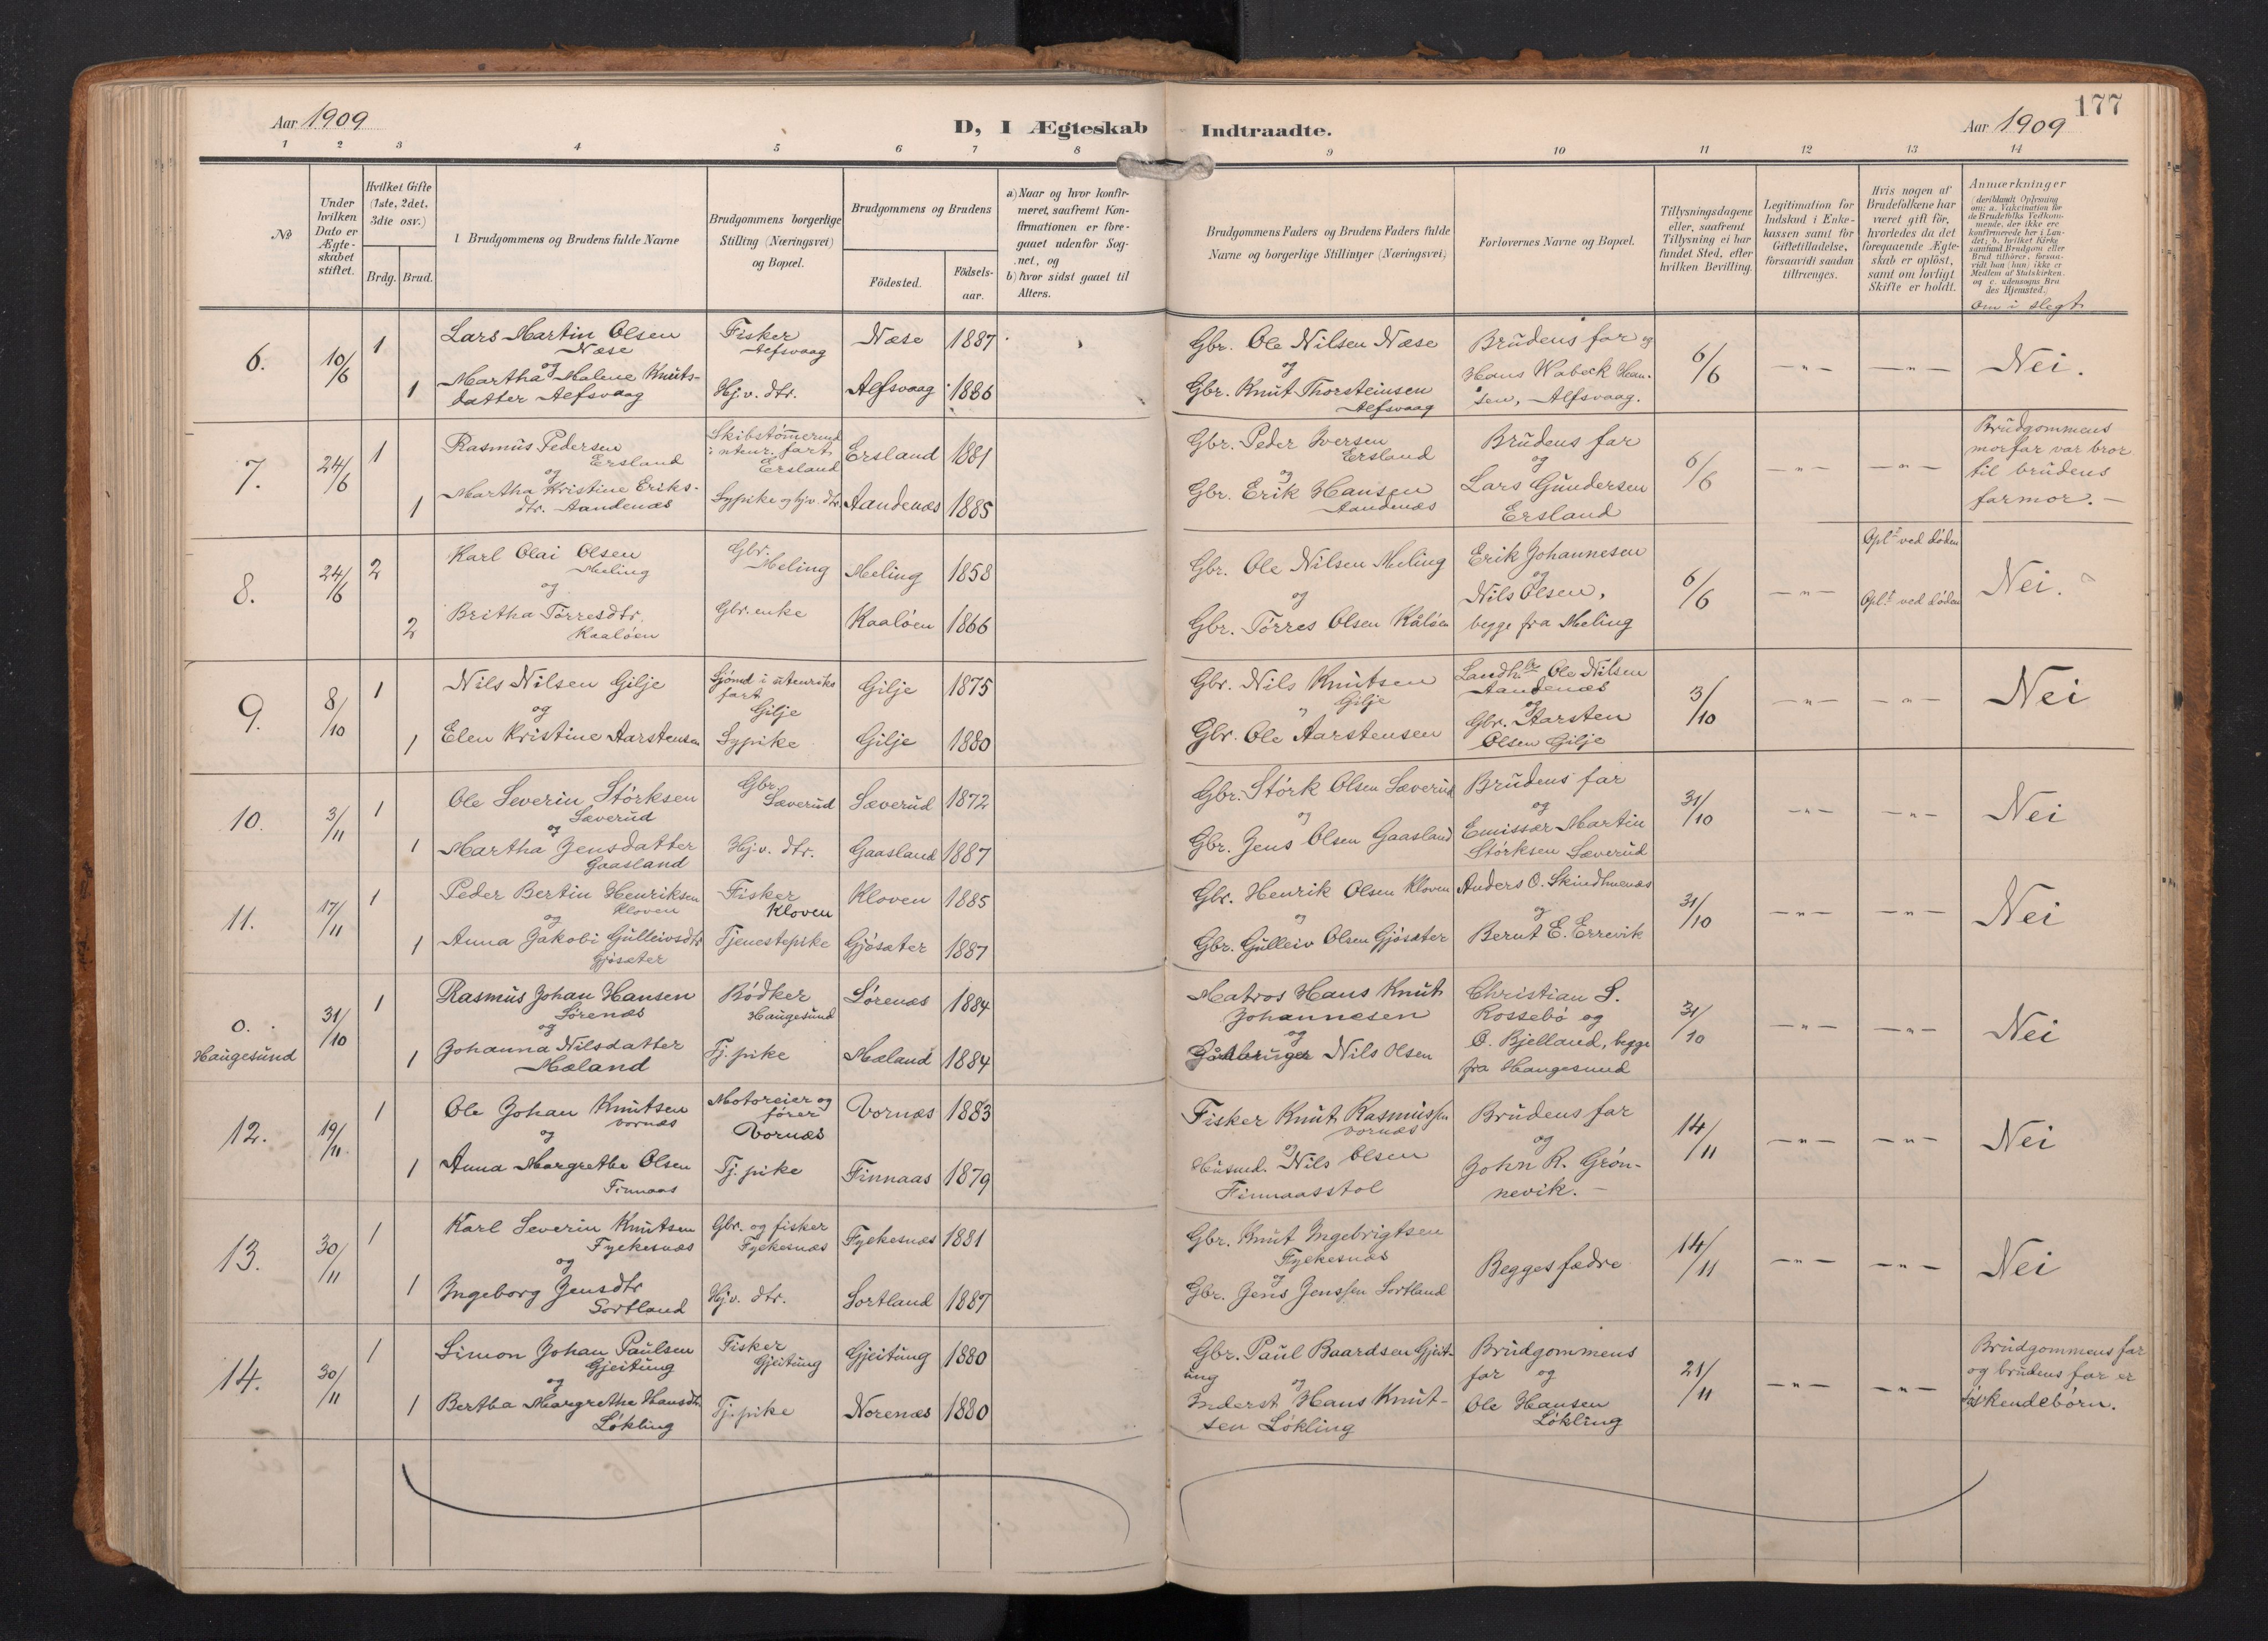 177
Aar 1909
D, I Ægteskab Indtraadte.
Aar 1909
1 2 3 4 5 6 7 8 9 10 11 12 13 14
№
Under
hvilken
Dato er
Ægte-
skabet
stiftet.
Hvilket Gifte
(1ste, 2det,
3die osv.)
Brdg. Brud.
Brudgommens og Brudens fulde Navne
Brudgommens borgerlige
Stilling (Næringsvei)
og Bopæl.
Brudgommens og Brudens
Födested.
Födsels-
aar.
a) Naar og hvor konfir-
meret, saafremt Kon-
firmationen er fore-
gaaet udenfor Sog-
net, og
b) hvor sidst gaaet til
Alters.
Brudgommens Faders og Brudens Faders fulde
Navne og borgerlige Stillinger (Næringsvei)
Forlovernes Navne og Bopæl.
Tillysningsdagene
eller, saafremt
Tillysning ei har
fundet Sted, efter
hvilken Bevilling.
Legitimation for
Indskud i Enke-
kassen samt for
Giftetilladelse,
forsaavidt saadan
tiltrænges.
Hvis nogen af
Brudefolkene har
været gift för,
hvorledes da det
foregaaende Ægte-
skab er oplöst,
samt om lovligt
Skifte er holdt.
Anmærkninger
(deriblandt Oplysning
om: a. Vakcination for
de Brudefolks Vedkom-
mende, der ikke ere
konfirmerede her i Lan-
det; b. hvilket Kirke-
samfund Brudgom eller
Brud tilhörer, forsaa-
vidt han (hun) ikke er
Medlem af Statskirken.
og c. udensogns Bru-
des Hjemsted.)
Om i slegt
6.
10/6
1
Lars Martin Olsen
Næse
og
1
Martha Malene Knuts-
datter Alfsvaag
Fisker
Alfsvaag
Hj.v. dtr.
Næse 1887
Alfsvaag 1886
Gbr. Ole Nilsen Næse
og
Gbr. Knut Thorsteinsen
Alfsvaag
Brudens far og
Hans Wabeck Han-
sen, Alfsvaag.
6/6
— " —
— " —
Nei.
7.
24/6
1
Rasmus Pedersen
Ersland
og
1
Martha Kristine Eriks-
dtr. Aandenæs
Skibstømmermd
i utenr. fart
Ersland
Sypike og hjv. dtr.
Ersland 1881
Aandenæs 1885
Gbr. Peder Iversen
Ersland
og
Gbr. Erik Hansen
Aandenæs
Brudens far
og
Lars Gundersen
Ersland
6/6
— " —
— " —
Brudgommens
morfar var bror
til brudens
farmor. —
8.
24/6
2
Karl Olai Olsen
Meling
og
2
Britha Tørresdtr.
Kaaløen
Gbr.
Meling
Gbr. enke
Meling 1858
Kaaløen 1866
Gbr. Ole Nilsen Meling
og
Gbr. Tørres Olsen Kåløen
Erik Johannesen
og
Nils Olsen,
begge fra Meling
6/6
— " —
Opl.t ved døden
Opl.t ved døden
Nei.
9.
8/10
1
Nils Nilsen Gilje
og
1
Elen Kristine Aarstensen
Sjømd i utenriks
fart
Gilje
Sypike
Gilje 1875
Gilje 1880
Gbr. Nils Knutsen
Gilje
"
Gbr. Ole Aarstensen
Landh.br Ole Nilsen
Aandenæs
og
Gbr. Aarsten
Olsen Gilje
3/10
— " —
— " —
Nei
10.
3/11
1
Ole Severin Størksen
Sæverud
og
1
Martha Jensdatter
Gaasland
Gbr.
Sæverud
Hj.v. dtr.
Sæverud 1872
Gaasland 1887
Gbr. Størk Olsen Sæverud
og
Gbr. Jens Olsen Gaasland
Brudens far
og
Emissær Martin
Størksen Sæverud
31/10
— " —
— " —
Nei
11.
17/11
1
Peder Bertin Henriksen
Kloven
og
1
Anna Jakobi Gulleivsdtr
Gjøsæter
Fisker
Kloven
Tjenestepike
Kloven 1885
Gjøsæter 1887
Gbr. Henrik Olsen Kloven
og
Gbr. Gulleiv Olsen Gjøsæter
Anders O. Skindhuenæs
og
Bernt E. Errevik
31/10
— " —
— " —
Nei
0.
Haugesund
31/10
1
Rasmus Johan Hansen
Sørenæs
og
1
Johanna Nilsdatter
Mæland
Bødker
Haugesund
Tj. pike
Sørenæs 1884
Mæland 1884
Matros Hans Knut
Johannesen
og
Gårdbruger Nils Olsen
Christian S.
Rossebø og
O. Bjelland, begge
fra Haugesund
31/10
— " —
— " —
Nei
12.
19/11
1
Ole Johan Knutsen
Vornæs
og
1
Anna Margrethe Olsen
Finnaas
Motoreier og
fører
Vornæs
Tj. pike
Vornæs 1883
Finnaas 1879
Fisker Knut Rasmussen
Vornæs
og
Husmd. Nils Olsen
Finnaasstøl
Brudens far
og
John R. Grøn-
nevik. —
14/11
— " —
— " —
Nei
13.
30/11
1
Karl Severin Knutsen
Fyckesnæs
og
1
Ingeborg Jensdtr
Sortland
Gbr. og fisker
Fyckesnæs
Hjv. dtr.
Fyckesnæs 1881
Sortland 1887
Gbr. Knut Ingebrigtsen
Fyckesnæs
og
Gbr. Jens Jenssen Sortland
Begges fædre
14/11
— " —
— " —
Nei
14.
30/11
1
Simon Johan Paulsen
Gjeitung
og
1
Bertha Margrethe Hansdtr.
Løkling
Fisker
Gjeitung
Tj. pike
Gjeitung 1880
Norenæs 1880
Gbr. Paul Baardsen Gjeit-
ung
og
Inderst Hans Knut-
sen Løkling
Brudgommens
far og
Ole Hansen
Løkling
21/11
— " —
— " —
Brudgommens far
og brudens far er
søskendebørn.